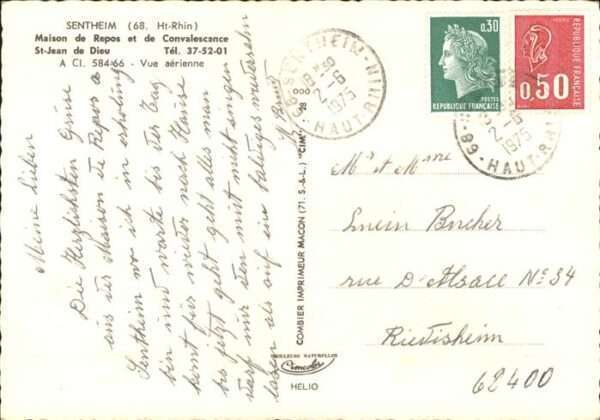 SENTHEIM (68. Ht-Rhin)
Maison de Repos et de Convalescance
St-Jean de Dieu Tél. 37-52-01
A CI. 584/66 - Vue aérienne
Meine Lieben
Die Herzlichsten Grüse
aus der Maison de Repos a
Sentheim wo ich in erholung
bin und warte bis der Tag
komt für wieder nach Hause
bis jetzt geht alles man
darf nur den mut nicht singen
lassen als auf ein baldiges wiedersehn
COMBIER IMPRIMEUR MACON (71. S.-&-L.) "CIM"
MEILLEURS NATURELLES
Cimcolor
HELIO
SENTHEIM
2-6
1975
68
HAUT-RHIN
0,30
POSTES
REPUBLIQUE FRANÇAISE
0,50
REPUBLIQUE FRANÇAISE
2-6
1975
68-HAUT-RHIN
Mr et Mme
Bucher
rue D'Alsace No 34
Riedisheim
68400